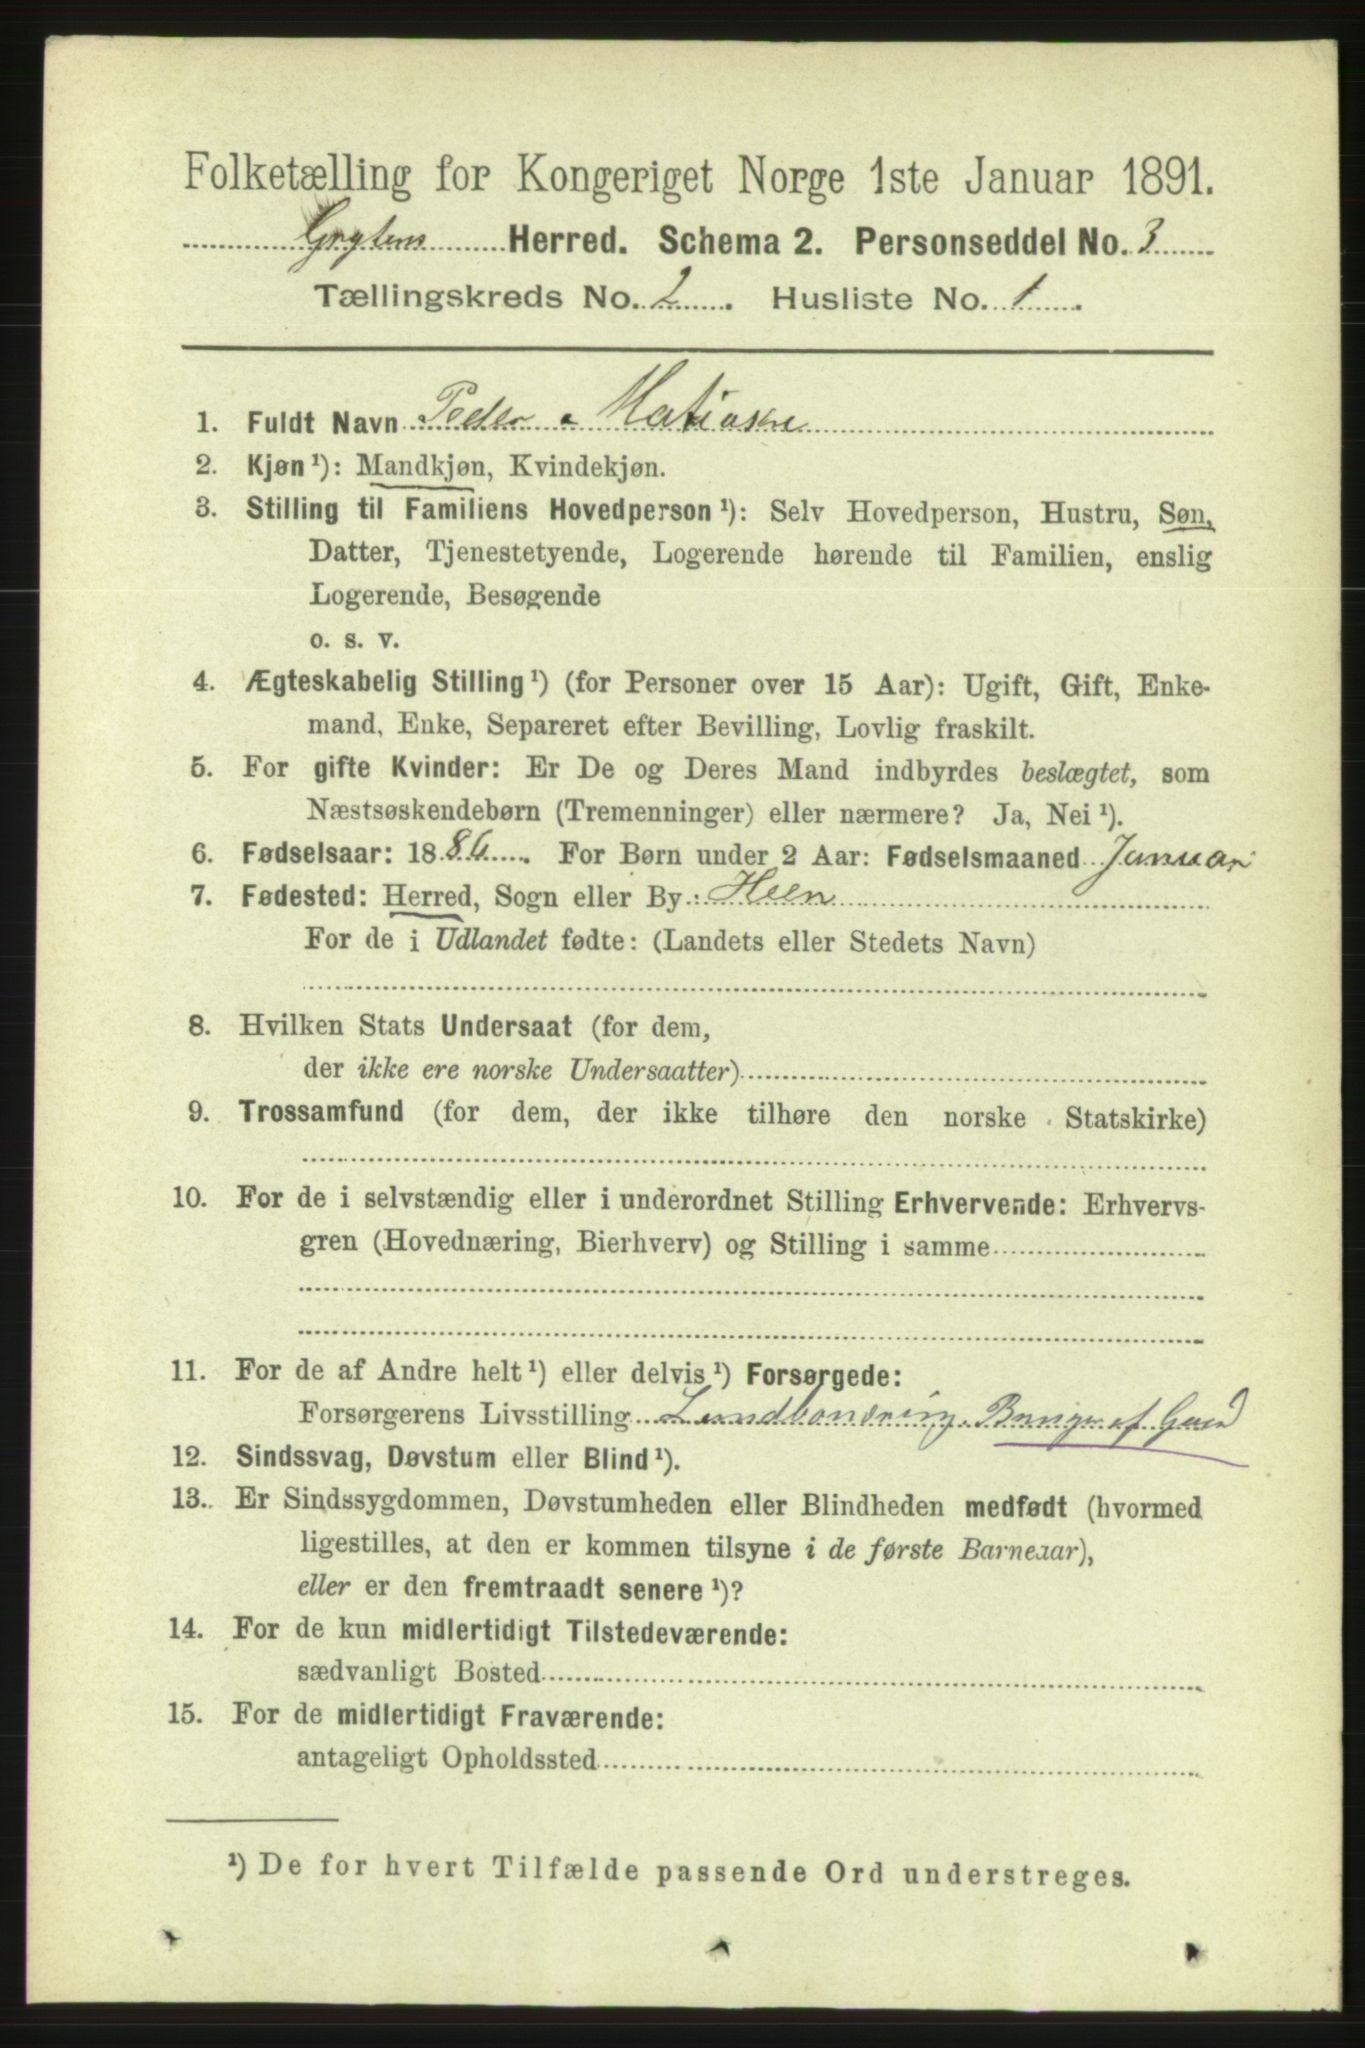 Folketælling for Kongeriget Norge 1ste Januar 1891.
Grytens Herred. Schema 2. Personseddel No. 3
Tællingskreds No. 2. Husliste No. 1.
1. Fuldt Navn Peder Matiasen
2. Kjøn¹): Mandkjøn, Kvindekjøn.
3. Stilling til Familiens Hovedperson¹): Selv Hovedperson, Hustru, Søn,
Datter, Tjenestetyende, Logerende hørende til Familien, enslig
Logerende, Besøgende
o. s. v.
4. Ægteskabelig Stilling¹) (for Personer over 15 Aar): Ugift, Gift, Enke-
mand, Enke, Separeret efter Bevilling, Lovlig fraskilt.
5. For gifte Kvinder: Er De og Deres Mand indbyrdes beslægtet, som
Næstsøskendebørn (Tremenninger) eller nærmere? Ja, Nei¹).
6. Fødselsaar: 1886. For Børn under 2 Aar: Fødselsmaaned Januar
7. Fødested: Herred, Sogn eller By: Heen
For de i Udlandet fødte: (Landets eller Stedets Navn)
8. Hvilken Stats Undersaat (for dem,
der ikke ere norske Undersaatter)
9. Trossamfund (for dem, der ikke tilhøre den norske Statskirke)
10. For de i selvstændig eller i underordnet Stilling Erhvervende: Erhvervs-
gren (Hovednæring, Bierhverv) og Stilling i samme
11. For de af Andre helt¹) eller delvis¹) Forsørgede:
Forsørgerens Livsstilling Landbonæring. Bruger af Gaard
12. Sindssvag, Døvstum eller Blind¹).
13. Er Sindssygdommen, Døvstumheden eller Blindheden medfødt (hvormed
ligestilles, at den er kommen tilsyne i de første Barneaar),
eller er den fremtraadt senere¹)?
14. For de kun midlertidigt Tilstedeværende:
sædvanligt Bosted
15. For de midlertidigt Fraværende:
antageligt Opholdssted
¹) De for hvert Tilfælde passende Ord understreges.